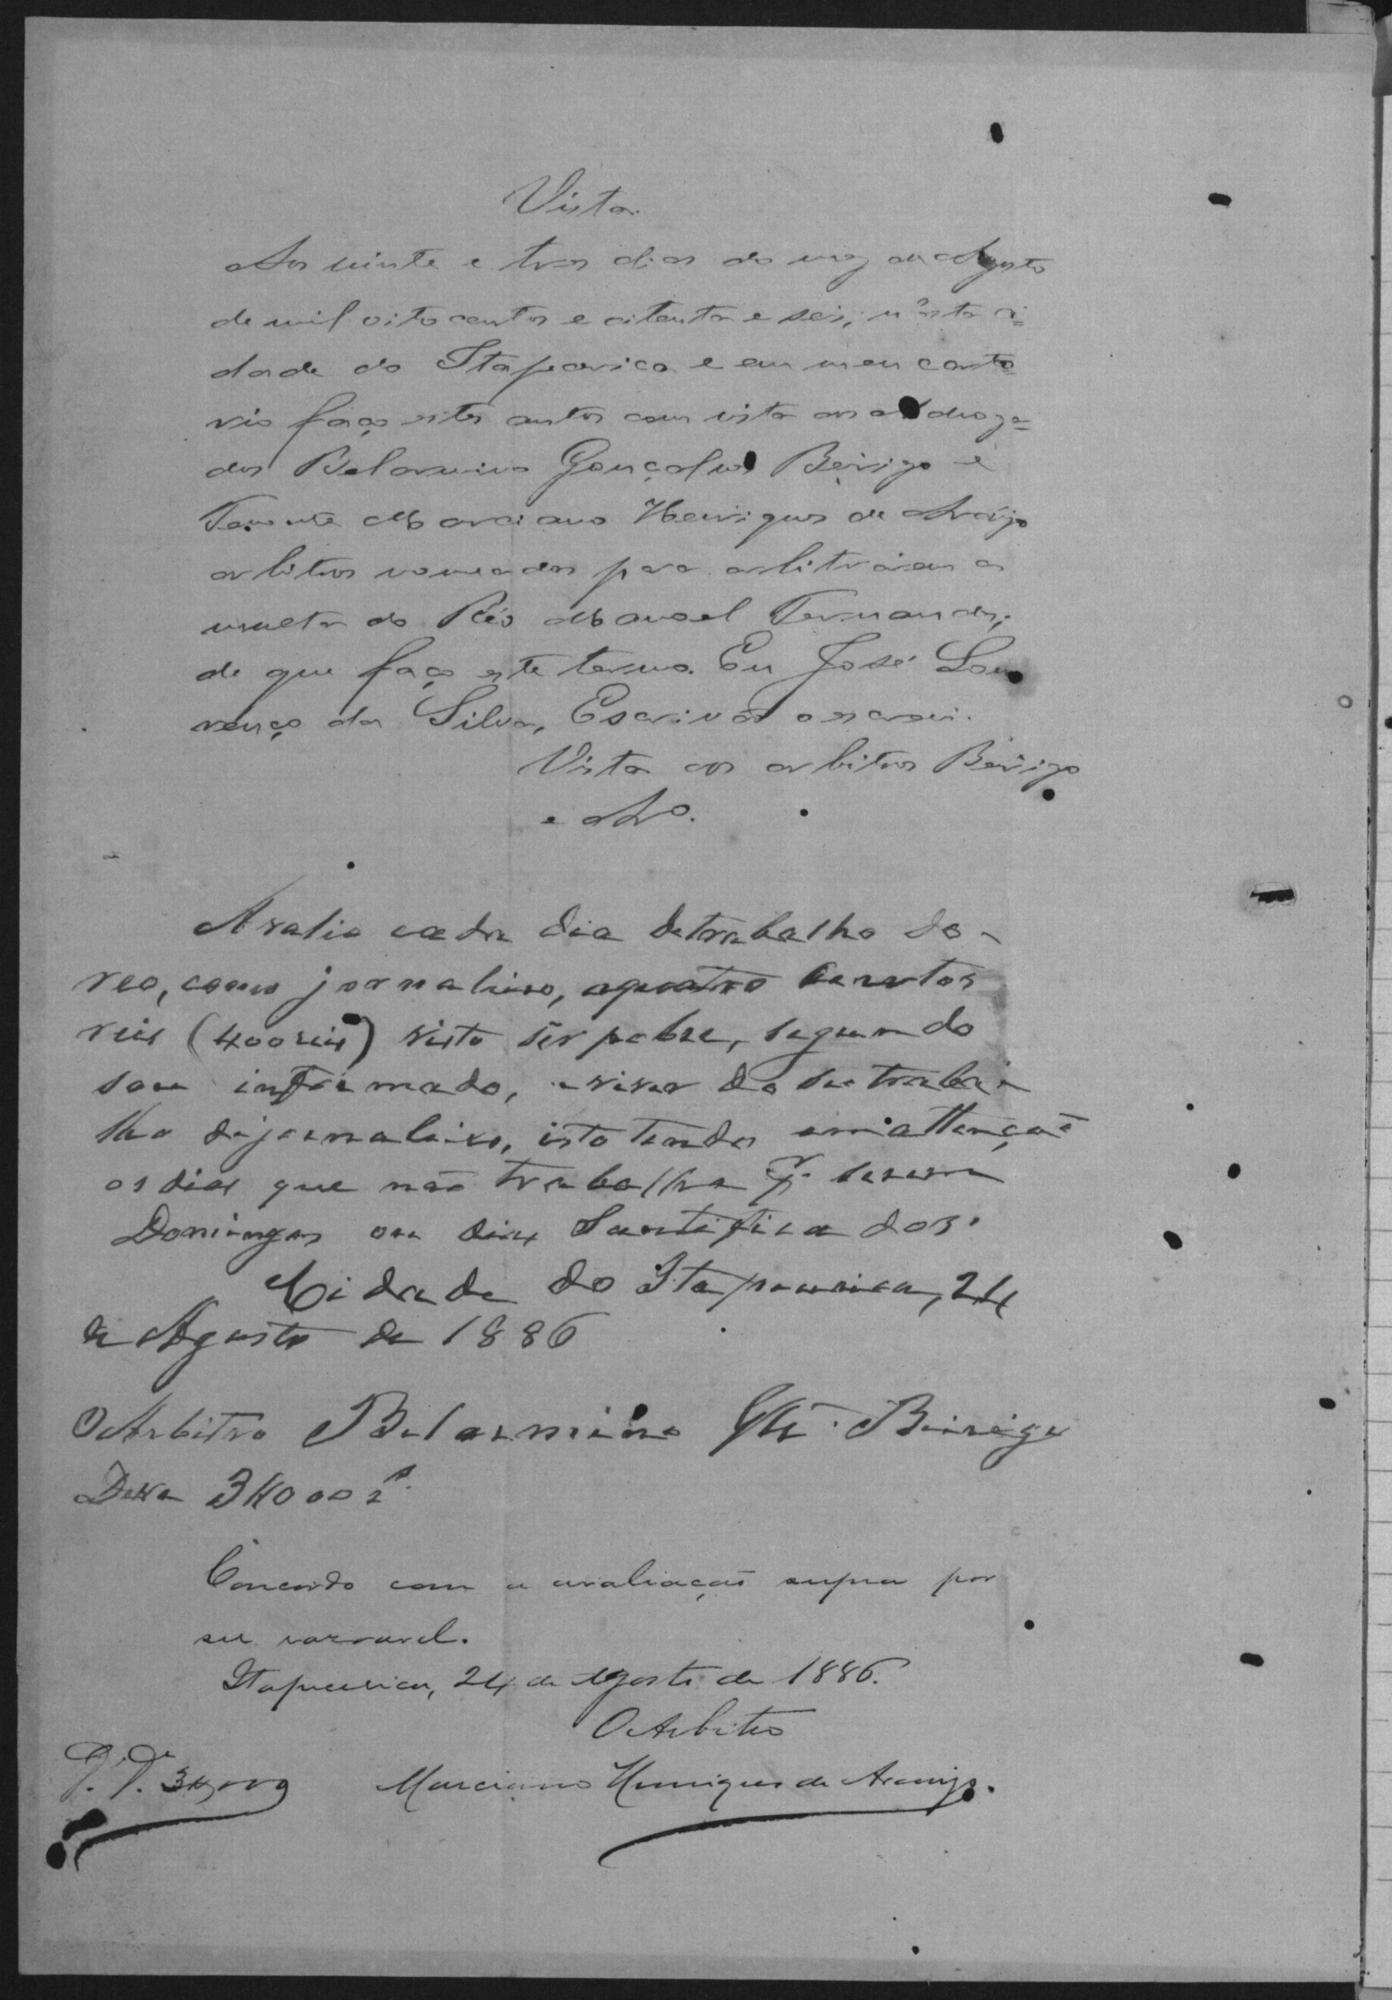 Vista
Aos vinte e tres dias do mez de Agosto
de mil oito centos e oitenta e seis, n'esta ci=
dade do Itapecurica e em meu carto
rio faço estes autos com vista aos advoga=
dos Belarmino Gonçalves Beirigo e
Tenente Marciano Henriques de Araujo
arbitros nomeados para arbitrarem a
multa do Réo Manoel Fernandes,
de que faço este termo. Eu José Lou
renço da Silva, Escrivão o escrevi.
Vista aos arbitros Beirigo
e Ar.º
Avalio cada dia de trabalho do
reo, como jornaleiro, a quatro centos
reis (400 reis) visto ser pobre, segundo
sou informado, e viver do seu traba
lho de jornaleiro, isto tendo em attenção
os dias que não trabalha pr. serem
Domingos ou dias Santificados.
Cidade do Itapecurica, 24
de Agosto de 1886
O Arbitro Belarmino Glz. Beirigo
Deve 3$000 rs.
Concordo com a avaliação supra por
ser rasoavel.
Itapecurica, 24 de Agosto de 1886.
O Arbitro
3$000 Marciano Henriques de Araujo.